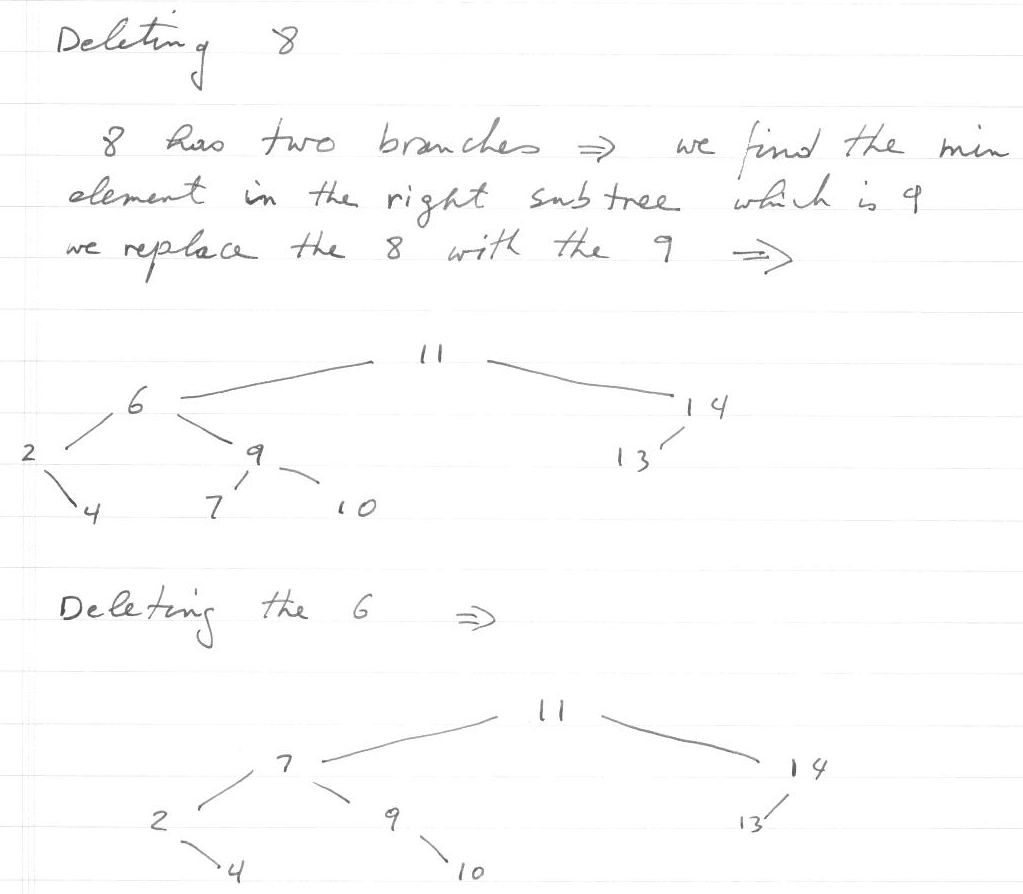 Deleting 8
8 has two branches ⇒ we find the min
element in the right subtree which is 9
we replace the 8 with the 9 ⇒
11
6 14
2 9 13
4 7 10
Deleting the 6 ⇒
11
7 14
2 9 13
4 10